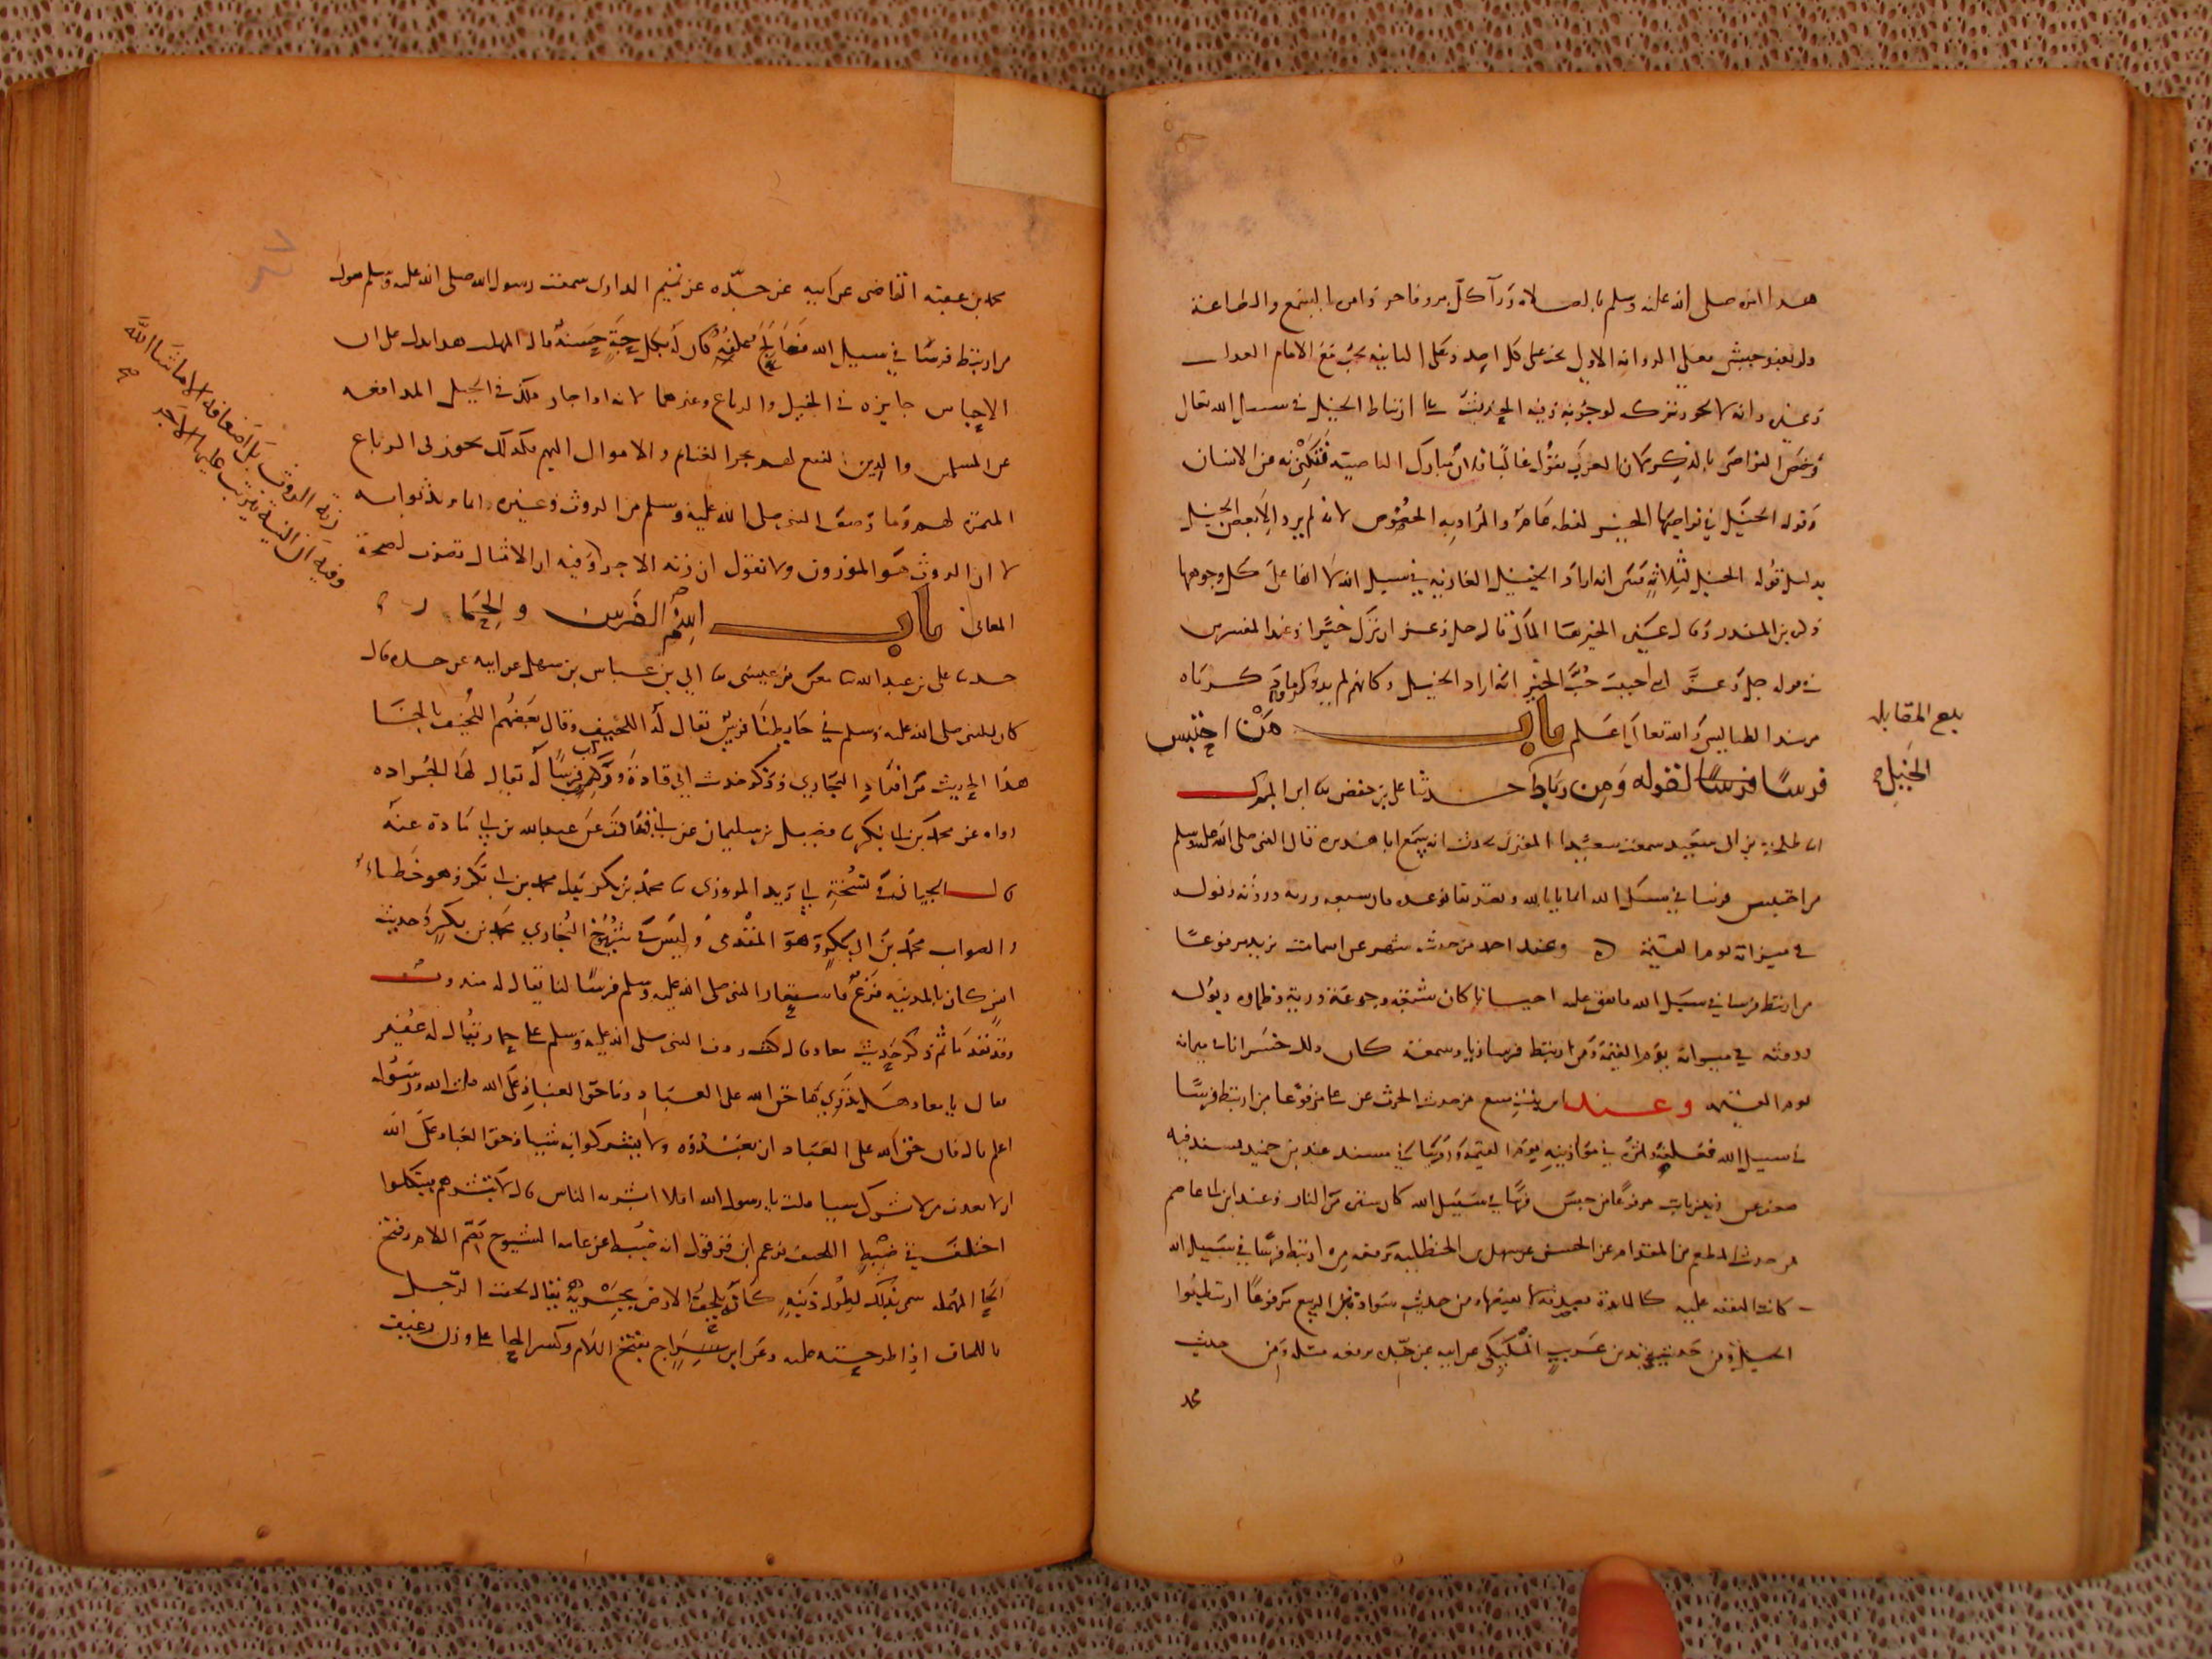 هذا امره صلى الله عليه وسلم بالصلاة ورآ كل بر وفاجر وامر بالسمع والطاعة
ولو لعبد حبشي فعلى الرواية الاولى على كل احد وعلى الثانية تحت الامام العدل
وغيره وانه لا يجوز تركه لوجوبه وفيه الحديث على ارتباط الخيل في سبيل الله تعالى
وخص النواصي بالذكر لان العرب تقول غالبا فلان مبارك الناصية فتكني به عن الانسان
وقوله الخيل في نواصيها الخير لفظه عام والمراد به الخصوص لانه لم يرد الا بعض الخيل
بدليل قوله الخيل لثلاثة فبين انه اراد الخيل الغازية في سبيل الله لا انها على كل وجوهها
ذكره ابن المنذر وقال غيره الخير هنا المال قال جل وعز ان ترك خيرا وعند المفسرين
في قوله جل وعز اني احببت حب الخير انه اراد الخيل وكانهم لم يريدوا
من سند الطيالسي والله تعالى اعلم باب من احتبس
فرسا لقوله ومن رباط الخيل حدثنا علي بن حفص ثنا ابن المبرك
انا طلحة بن ابي سعيد سمعت سعيدا المقبري يحدث انه سمع ابا هريرة قال النبي صلى الله عليه وسلم
من احتبس فرسا في سبيل الله ايمانا بالله وتصديقا بوعده فان شبعه وريه وروثه وبوله
في ميزانه يوم القيمة وعند احمد من حديث شهر عن اسماء بنت يزيد مرفوعا
من ارتبط فرسا في سبيل الله فانفق عليه احتسابا كان شبعه وجوعه وريه وظماوه وبوله
وروثه في ميزانه يوم القيمة ومن ارتبط فرسا ريا وسمعة كان ذلك خسرانا في ميزانه
يوم القيمة وعند ابن بنت منيع من حديث الحرث عن علي مرفوعا من ارتبط فرسا
في سبيل الله فعلفه واثره في موازينه يوم القيمة وروينا في مسند عبد بن حميد بسند فيه
ضعف عن زيد بن ثابت مرفوعا من حبس فرسا في سبيل الله كان ستره من النار وعند ابن ابي عاصم
من حديث المطعم بن المقدام عن الحسن عن سهل بن الحنظلية يرفعه من ارتبط فرسا في سبيل الله
كانت النفقة عليه كالماد يده بصدقة لا يقبضها ومن حديث سوادة بن الربيع مرفوعا ارتبطوا
الخيل ومن حديث يزيد بن عريب المليكي عن ابيه عن جده يرفعه مثله ومن حديث
محمد
بلغ المقابله
الخيل
محمد بن عقبة القاضي عن ابيه عن جده عن تميم الداري سمعت رسول الله صلى الله عليه وسلم يقول
من ارتبط فرسا في سبيل الله فعالج علفه كان له بكل حبة حسنة قال المهلب هذا يدل على ان
الاحباس جايزة في الخيل والرباع وغيرهما لانه اذا جاز ذلك في الخيل المدافعة
عن المسلمين والدين لنفع لهم بجر الغنايم والاموال اليهم فكذلك يجوز في الرباع
المثمرة لهم وما وصف النبي صلى الله عليه وسلم من الروث وغيره وانما يريد ثوابه
لا ان الروث هو الموزون ولا نقول ان زنة الاجر وفيه ان الامثال تضرب لصحة
المعاني باب اسم الفرس والحمار
حدثنا علي بن عبد الله ثنا معن بن عيسى ثنا ابي بن عباس بن سهل عن ابيه عن جده قال
كان للنبي صلى الله عليه وسلم في حايطنا فرس يقال له اللحيف وقال بعضهم اللخيف بالخا
هذا الحديث من افراد البخاري وذكر حديث ابي قتادة وركب فرسا له يقال لها الجراده
رواه عن محمد بن ابي بكر ثنا فضيل بن سليمان عن ابي حازم عن عبد الله بن ابي قتادة عنه
قال الجياني في نسخة ابي زيد المروزي ثنا محمد بن بكر بدل محمد بن ابي بكر وهو خطاء
والصواب محمد بن ابي بكر وهو المقدمي وليس في شيوخ البخاري محمد بن بكر وحديث
انس كان بالمدينة فزع فاستعار النبي صلى الله عليه وسلم فرسا لنا يقال له مندوب
وقد تقدما ثم ذكر حديث معاذ قال كنت ردف النبي صلى الله عليه وسلم على حمار يقال له عفير
فقال يا معاذ هل تدري ما حق الله على العباد وما حق العباد على الله قلت الله ورسوله
اعلم قال فان حق الله على العباد ان يعبدوه ولا يشركوا به شيا وحق العباد على الله
ان لا يعذب من لا يشرك به شيا قلت يا رسول الله افلا ابشر به الناس قال لا تبشرهم فيتكلوا
اختلف في ضبط اللحيف فزعم ابن قرقول انه ضبط عن عامة الشيوخ بضم اللام وفتح
الحا المهملة سمي بذلك لطول ذنبه كانه يلحف الارض بجريه يقال لحفت الرجل
باللحاف اذا طرحته عليه وعن ابن سراج بفتح اللام وكسر الحا على وزن رغيف
زنة الروث بل اضعافه الى ما شا الله
وفيه ان النية يترتب عليها الاجر
صح